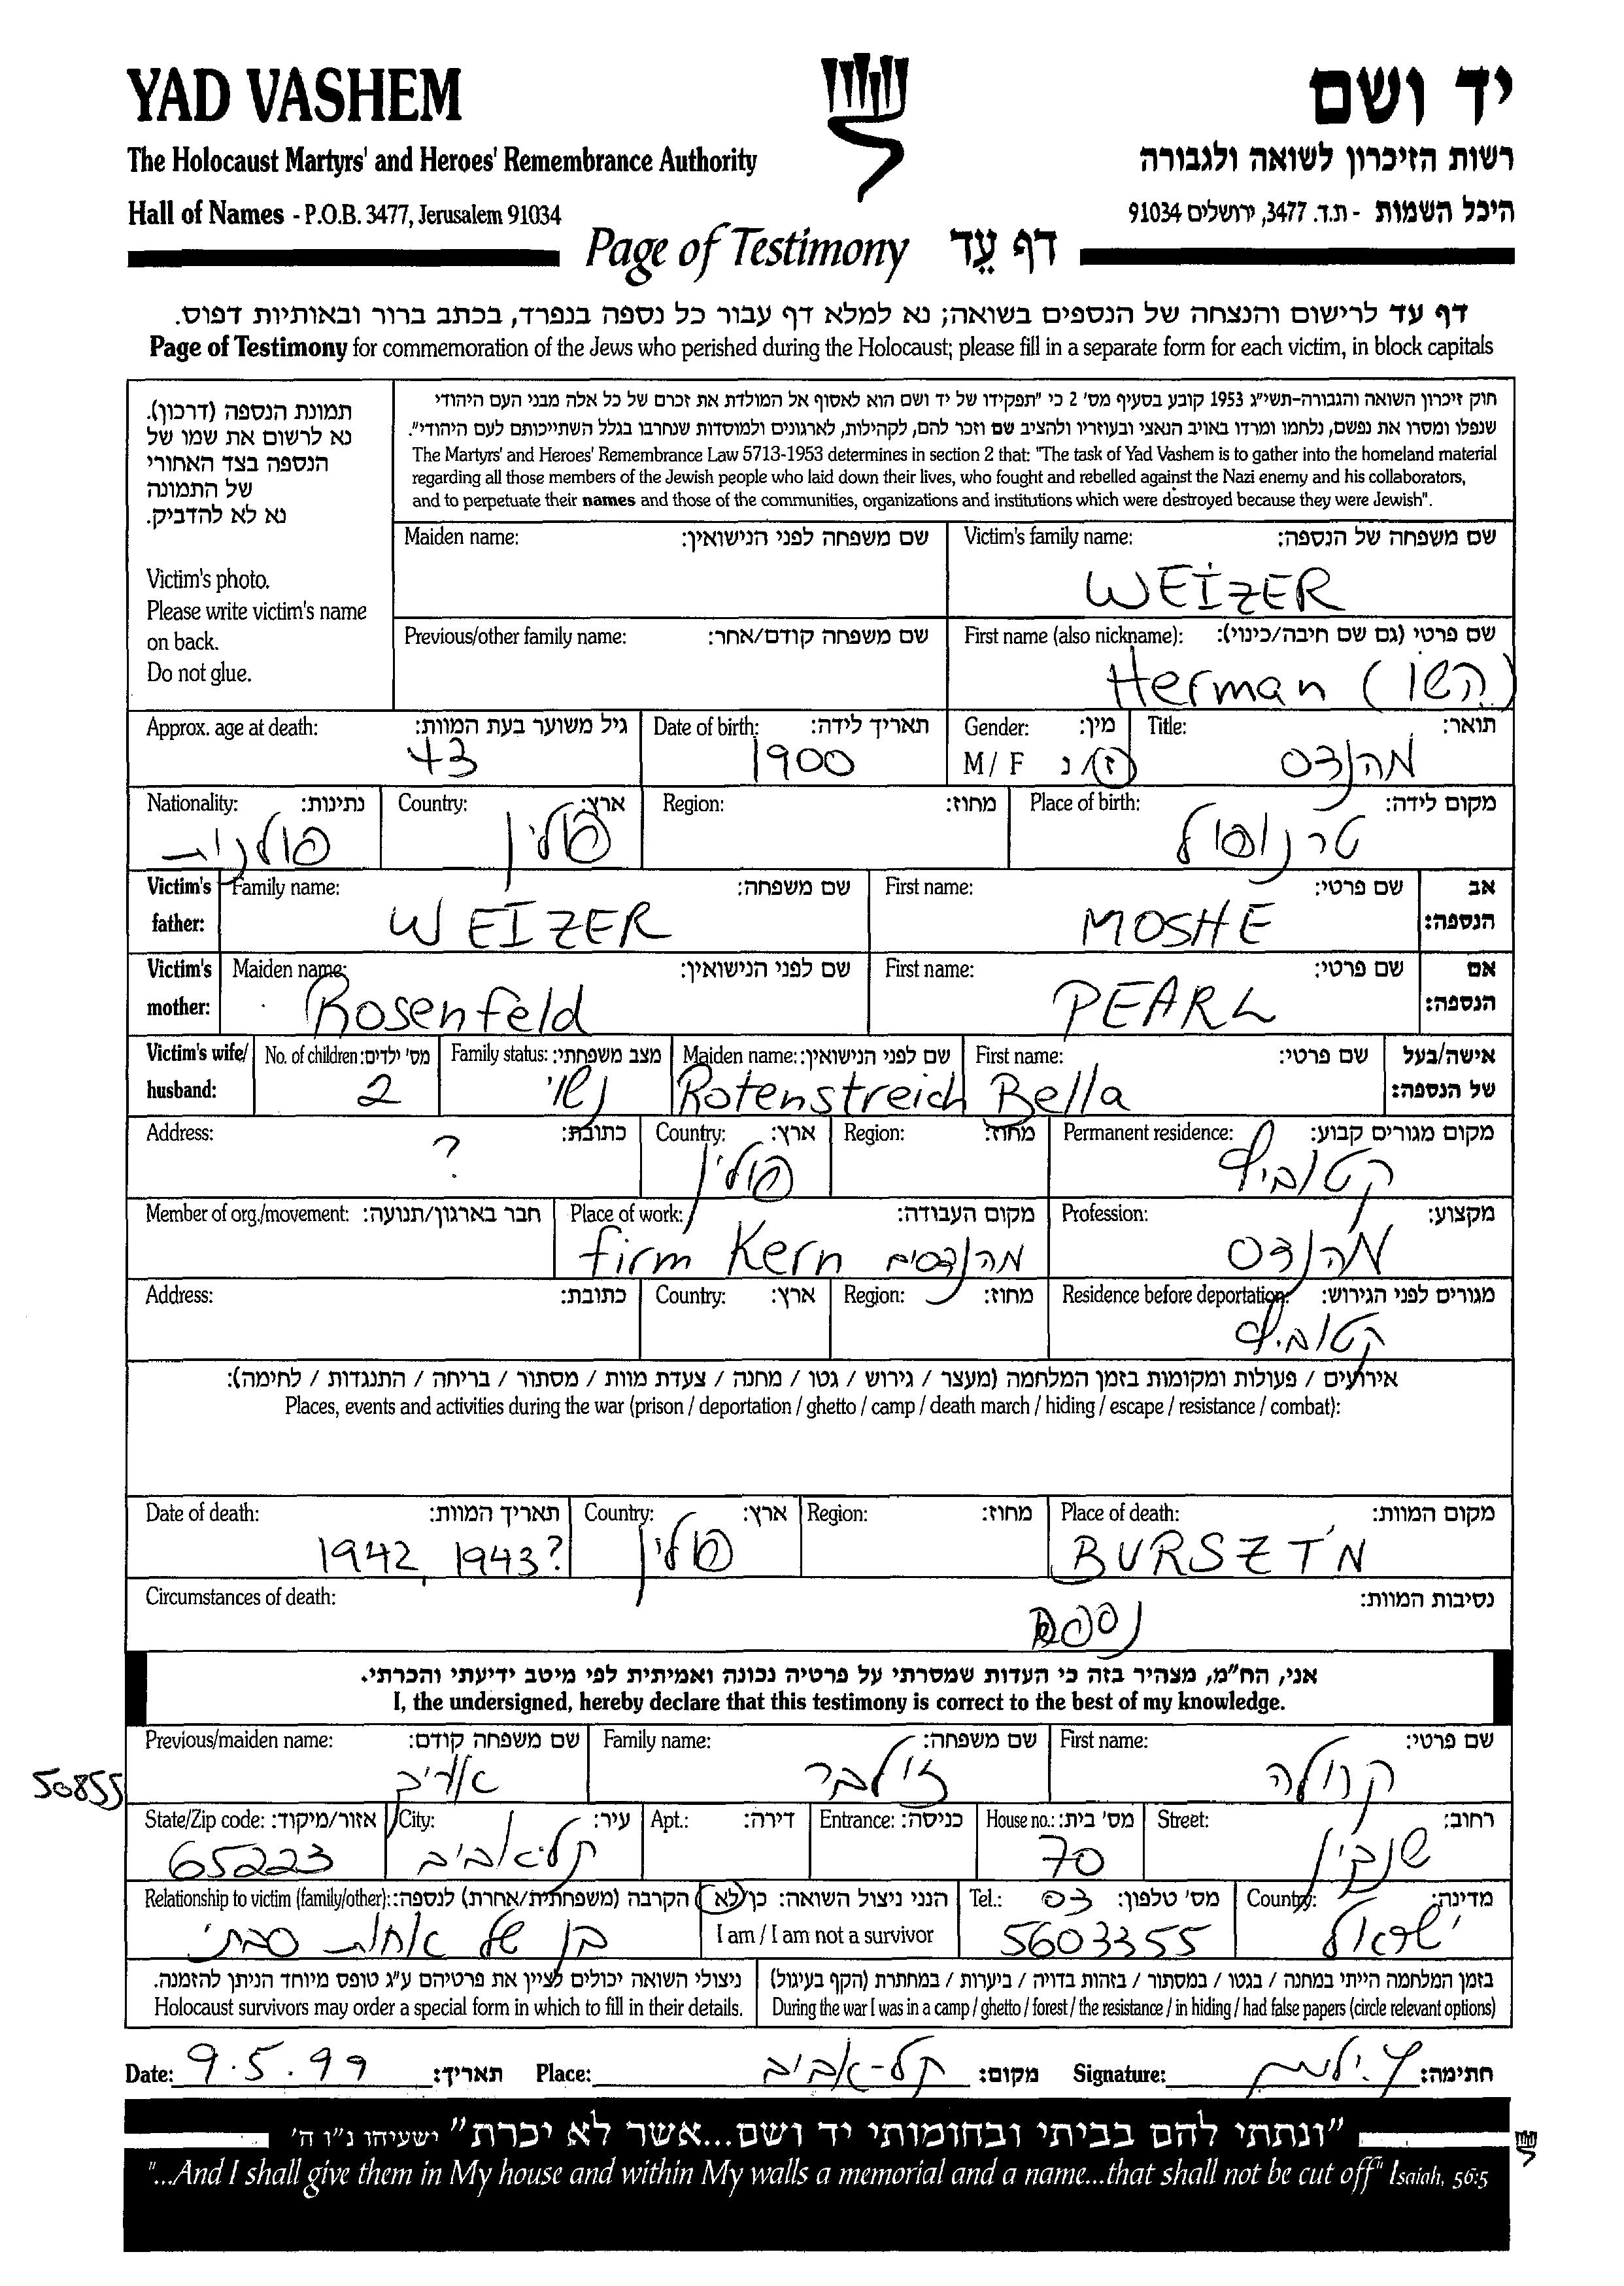 YAD VASHEM
יד ושם
The Holocaust Martyrs' and Heroes' Remembrance Authority
רשות הזיכרון לשואה ולגבורה
Hall of Names - P.O.B. 3477, Jerusalem 91034
היכל השמות - ת.ד. 3477, ירושלים 91034
Page of Testimony דף עֵד
דף עד לרישום והנצחה של הנספים בשואה; נא למלא דף עבור כל נספה בנפרד, בכתב ברור ובאותיות דפוס.
Page of Testimony for commemoration of the Jews who perished during the Holocaust; please fill in a separate form for each victim, in block capitals
תמונת הנספה (דרכון).
נא לרשום את שמו של
הנספה בצד האחורי
של התמונה
נא לא להדביק.
Victim's photo.
Please write victim's name
on back.
Do not glue.
חוק זיכרון השואה והגבורה-תשי"ג 1953 קובע בסעיף מס' 2 כי "תפקידו של יד ושם הוא לאסוף אל המולדת את זכרם של כל אלה מבני העם היהודי
שנפלו ומסרו את נפשם, נלחמו ומרדו באויב הנאצי ובעוזריו ולהציב שם וזכר להם, לקהילות, לארגונים ולמוסדות שנחרבו בגלל השתייכותם לעם היהודי".
The Martyrs' and Heroes' Remembrance Law 5713-1953 determines in section 2 that: "The task of Yad Vashem is to gather into the homeland material
regarding all those members of the Jewish people who laid down their lives, who fought and rebelled against the Nazi enemy and his collaborators,
and to perpetuate their names and those of the communities, organizations and institutions which were destroyed because they were Jewish".
Victim's family name: שם משפחה של הנספה:
WEIZER
Maiden name: שם משפחה לפני הנישואין:
First name (also nickname): שם פרטי (גם שם חיבה/כינוי):
Herman
Previous/other family name: שם משפחה קודם/אחר:
Title: תואר:
מהנדס
Gender: מין:
M / F ז / נ
Date of birth: תאריך לידה:
1900
Approx. age at death: גיל משוער בעת המוות:
43
Place of birth: מקום לידה:
טרנופול
Region: מחוז:
Country: ארץ:
פולין
Nationality: נתינות:
פולנית
Victim's father: אב הנספה:
First name: שם פרטי:
MOSHE
Family name: שם משפחה:
WEIZER
Victim's mother: אם הנספה:
First name: שם פרטי:
PEARL
Maiden name: שם לפני הנישואין:
Rosenfeld
Victim's wife/ husband: אישה/בעל של הנספה:
First name: שם פרטי:
Bella
Maiden name: שם לפני הנישואין:
Rotenstreich
Family status: מצב משפחתי:
נשוי
No. of children: מס' ילדים:
2
Permanent residence: מקום מגורים קבוע:
קטוביץ
Region: מחוז:
Country: ארץ:
פולין
Address: כתובת:
?
Profession: מקצוע:
מהנדס
Place of work: מקום העבודה:
firm Kern מהנדסים
Member of org./movement: חבר בארגון/תנועה:
Residence before deportation: מגורים לפני הגירוש:
קטוביץ
Region: מחוז:
Country: ארץ:
Address: כתובת:
אירועים / פעולות ומקומות בזמן המלחמה (מעצר / גירוש / גטו / מחנה / צעדת מוות / מסתור / בריחה / התנגדות / לחימה):
Places, events and activities during the war (prison / deportation / ghetto / camp / death march / hiding / escape / resistance / combat):
Place of death: מקום המוות:
BURSZTN
Region: מחוז:
Country: ארץ:
פולין
Date of death: תאריך המוות:
1942, 1943?
Circumstances of death: נסיבות המוות:
אני, הח"מ, מצהיר בזה כי העדות שמסרתי על פרטיה נכונה ואמיתית לפי מיטב ידיעתי והכרתי.
I, the undersigned, hereby declare that this testimony is correct to the best of my knowledge.
First name: שם פרטי:
Family name: שם משפחה:
זילבר
Previous/maiden name: שם משפחה קודם:
50855
Street: רחוב:
שנקין
House no.: מס' בית:
70
Entrance: כניסה:
Apt.: דירה:
City: עיר:
תל-אביב
State/Zip code: אזור/מיקוד:
65223
Country: מדינה:
ישראל
Tel.: מס' טלפון:
03
5603355
הנני ניצול השואה: כן / לא
I am / I am not a survivor
Relationship to victim (family/other): הקרבה (משפחתית/אחרת) לנספה:
בן של אחות סבתי
בזמן המלחמה הייתי במחנה / בגטו / במסתור / בזהות בדויה / ביערות / במחתרת (הקף בעיגול)
During the war I was in a camp / ghetto / forest / the resistance / in hiding / had false papers (circle relevant options)
ניצולי השואה יכולים לציין את פרטיהם ע"ג טופס מיוחד הניתן להזמנה.
Holocaust survivors may order a special form in which to fill in their details.
Date: 9.5.99 תאריך: Place: תל-אביב מקום: Signature: חתימה:
"ונתתי להם בביתי ובחומותי יד ושם...אשר לא יכרת" ישעיהו נ"ו ה'
"...And I shall give them in My house and within My walls a memorial and a name...that shall not be cut off" Isaiah, 56:5